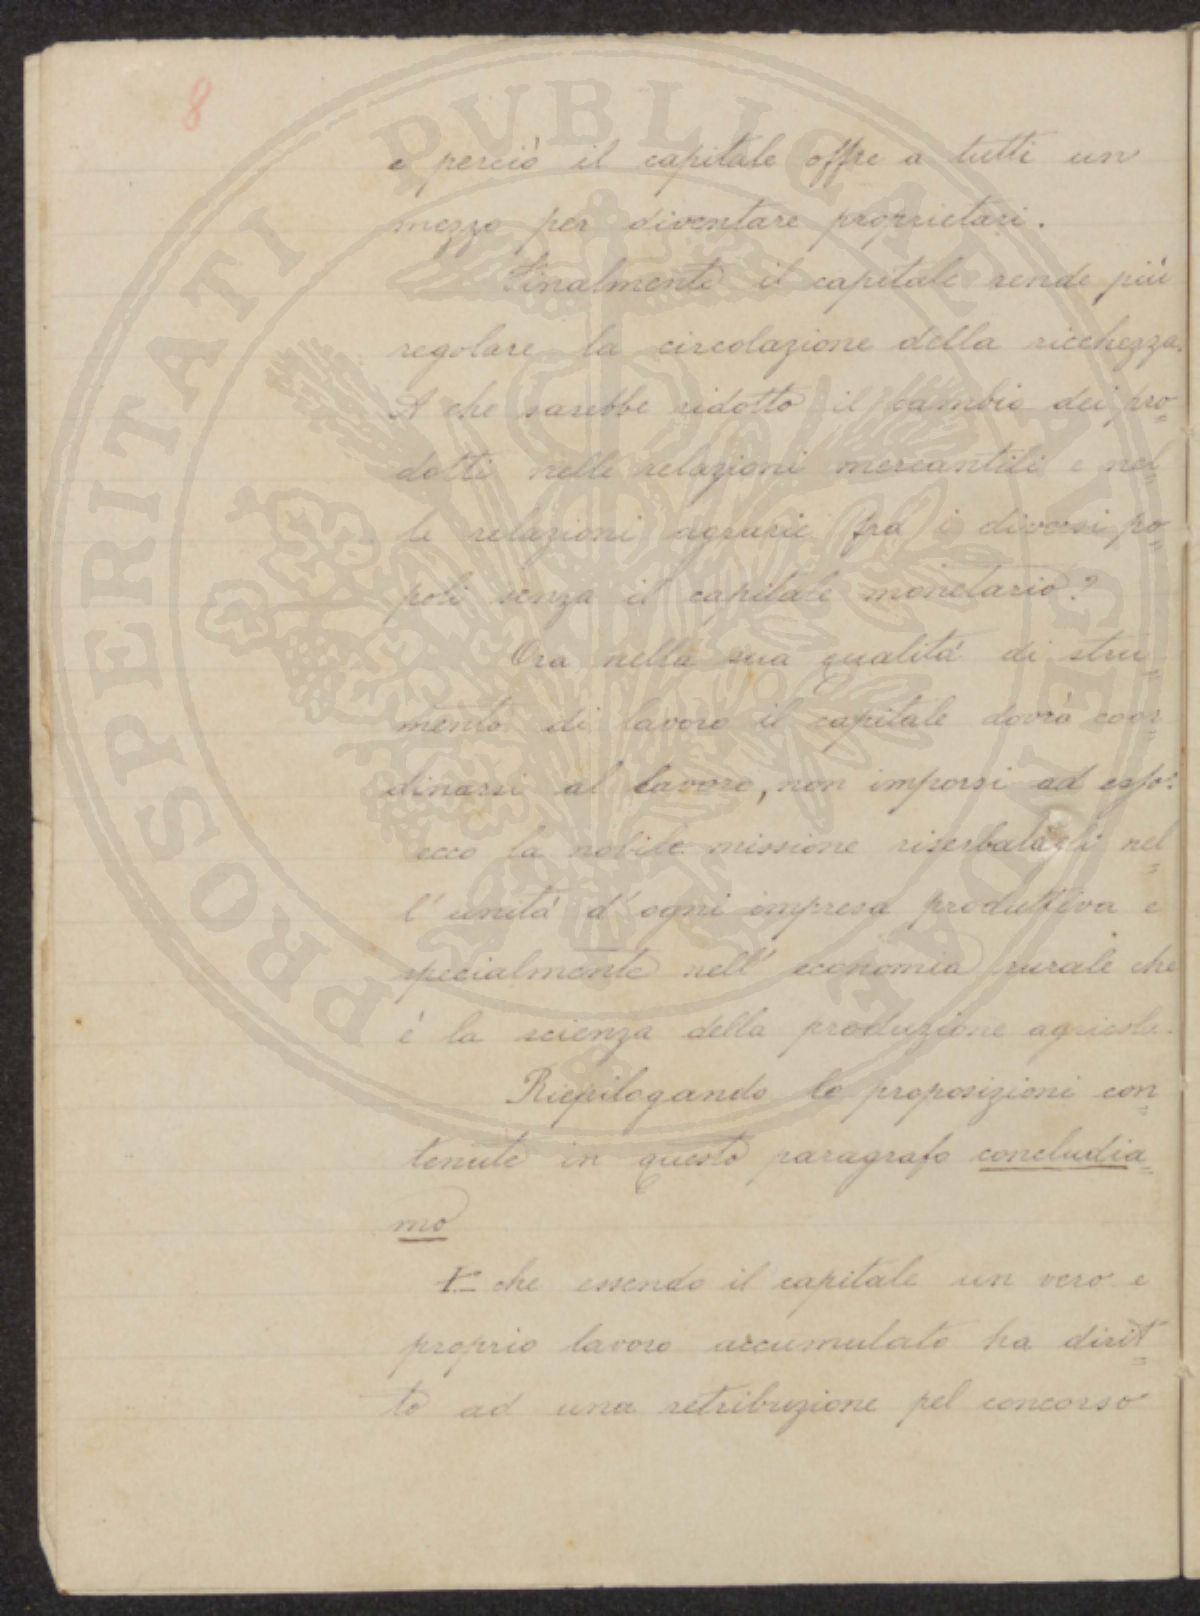 8
PROSPERITATI PUBLICAE AUGENDAE
e perciò il capitale offre a tutti un
mezzo per diventare proprietari.
Finalmente il capitale rende più
regolare la circolazione della ricchezza.
A che sarebbe ridotto il cambio dei pro=
dotti nelle relazioni mercantili e nel=
le relazioni agrarie fra i diversi po=
poli senza il capitale monetario?
Ora nella sua qualità di stru=
mento di lavoro il capitale dovrà coor=
dinarsi al lavoro, non imporsi ad esso:
ecco la nobile missione riserbatagli nel=
l'unità d'ogni impresa produttiva e
specialmente nell'economia rurale che
è la scienza della produzione agricola.
Riepilogando le proposizioni con=
tenute in questo paragrafo concludia=
mo
I= che essendo il capitale un vero e
proprio lavoro accumulato ha dirit=
to ad una retribuzione pel concorso